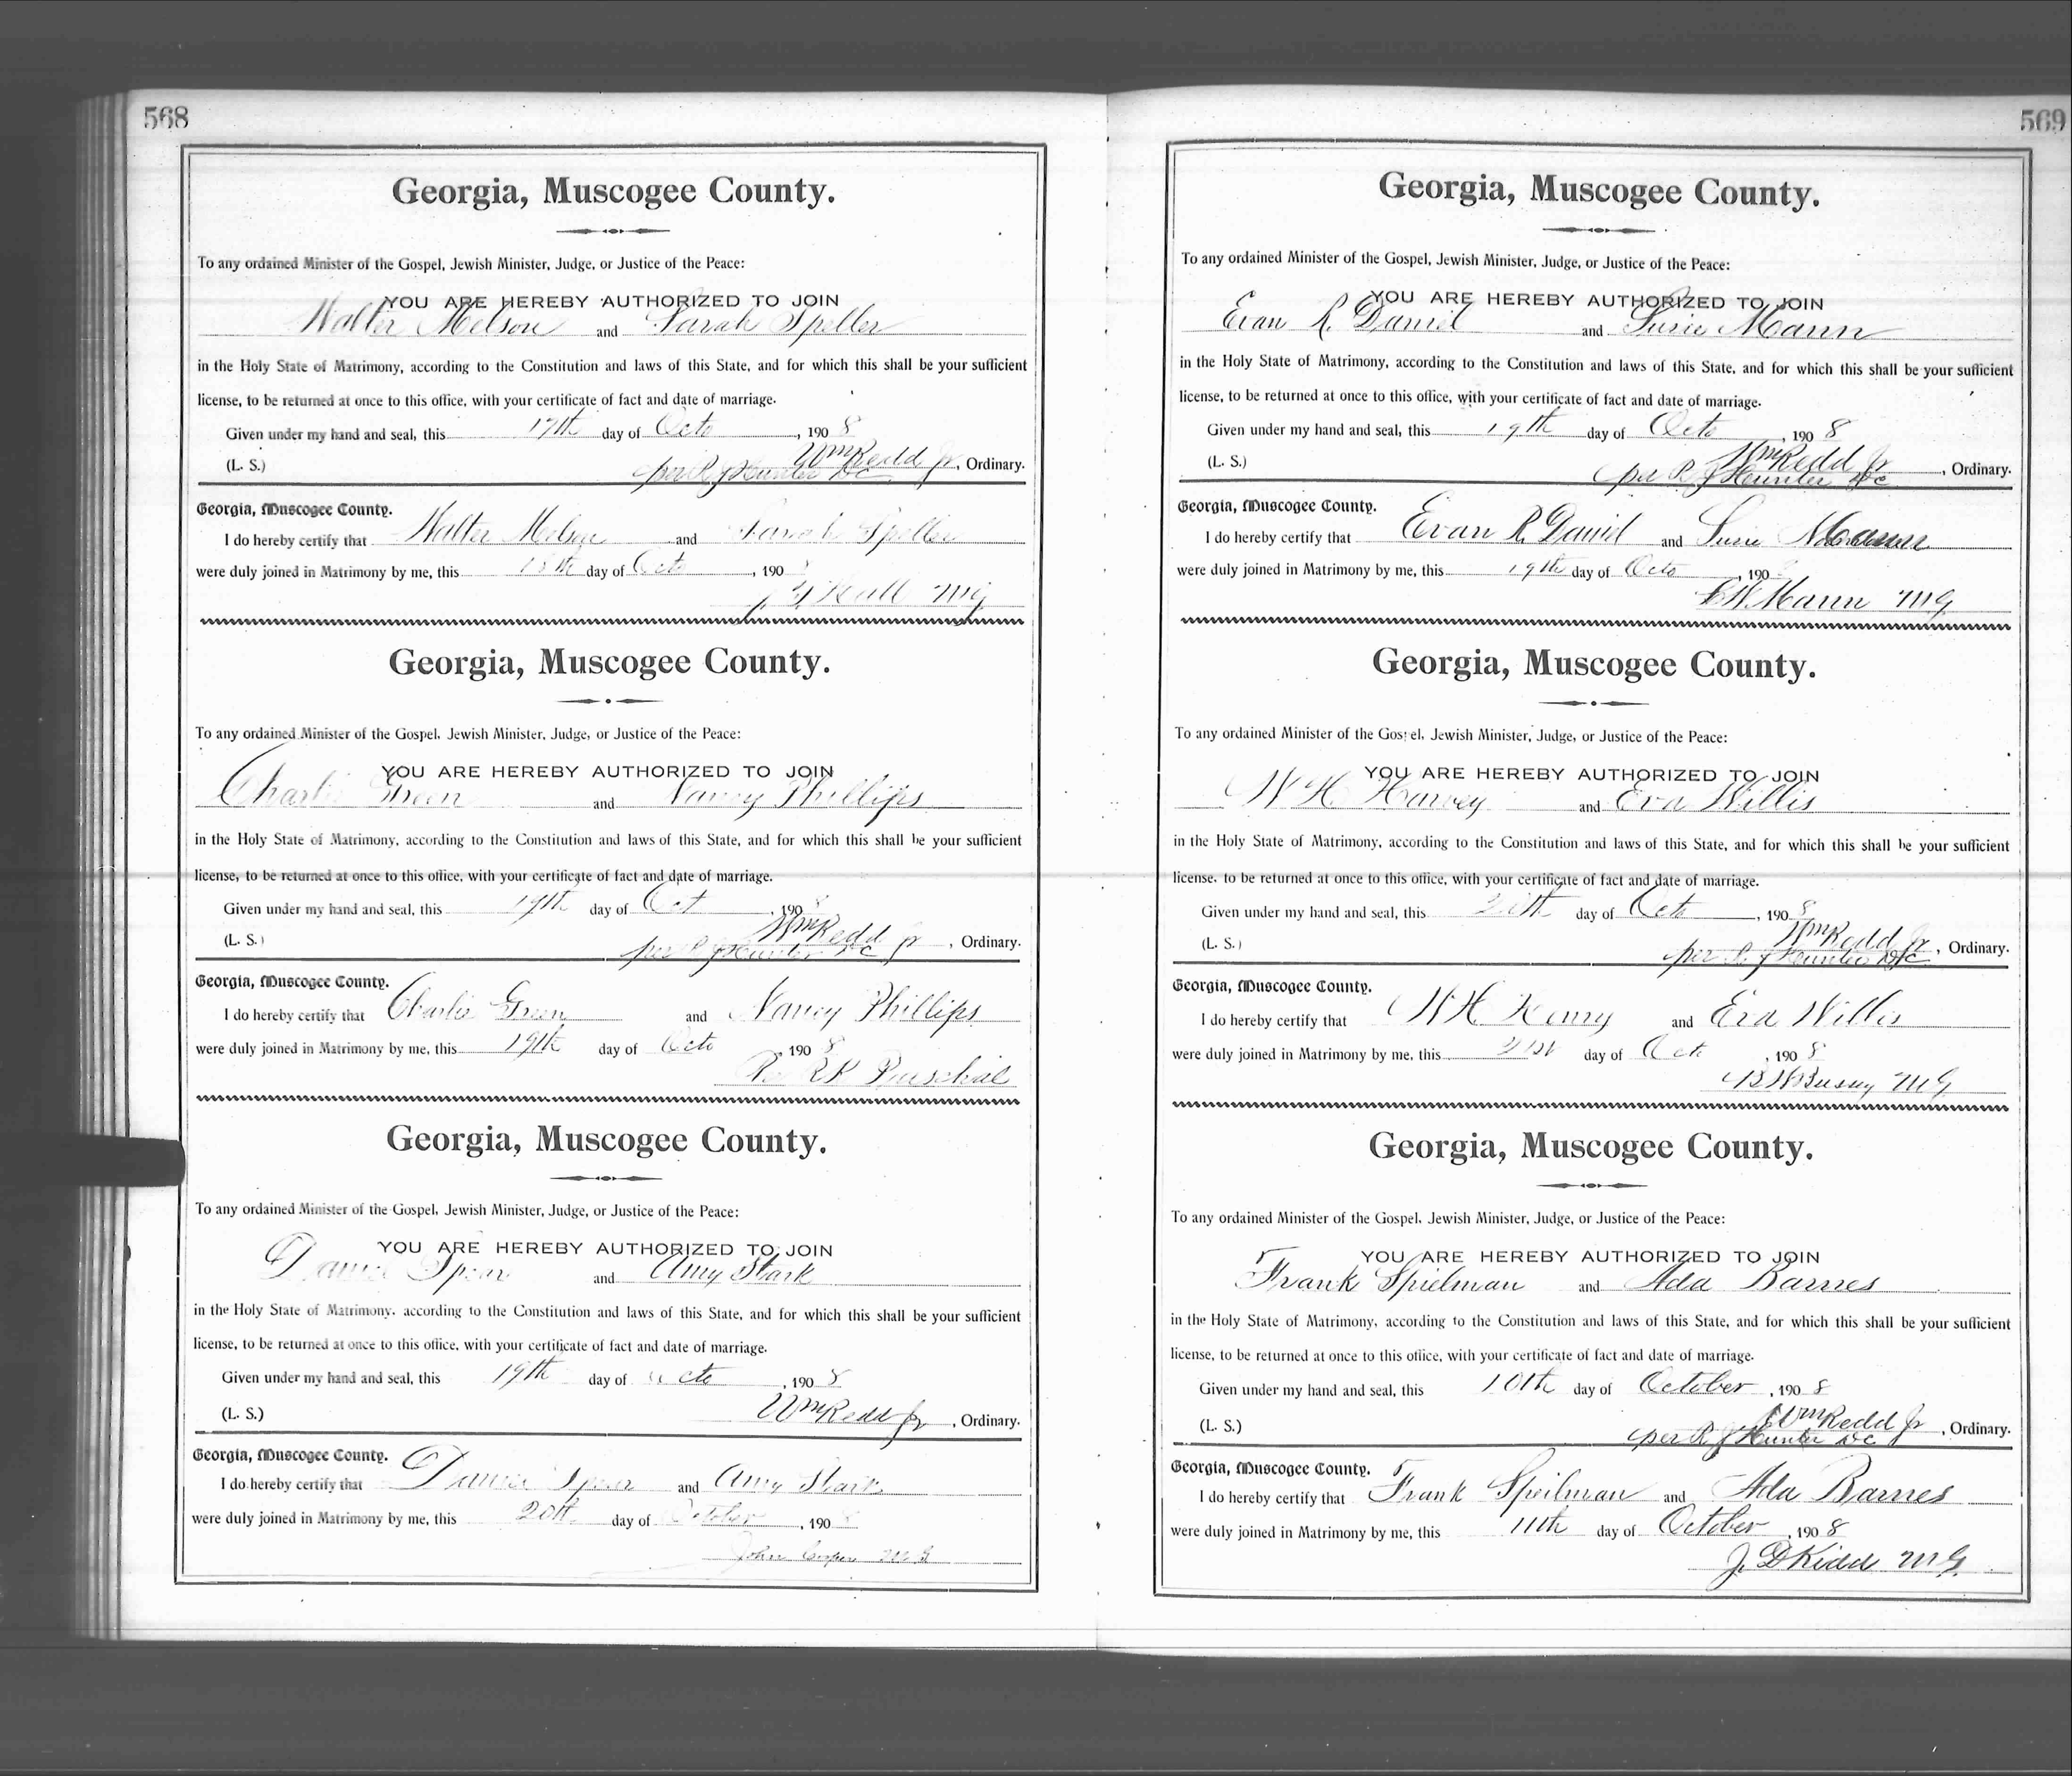 568
Georgia, Muscogee County.
To any ordained Minister of the Gospel, Jewish Minister, Judge, or Justice of the Peace:
YOU ARE HEREBY AUTHORIZED TO JOIN
Walter Melson and Sarah Speller
in the Holy State of Matrimony, according to the Constitution and laws of this State, and for which this shall be your sufficient
license, to be returned at once to this office, with your certificate of fact and date of marriage.
Given under my hand and seal, this 17th day of Octo, 1908
(L. S.) Wm Redd Jr, Ordinary.
per R J Hunter DC
Georgia, Muscogee County.
I do hereby certify that Walter Melson and Sarah Speller
were duly joined in Matrimony by me, this 18th day of Octo, 190
Hall MG
Georgia, Muscogee County.
To any ordained Minister of the Gospel, Jewish Minister, Judge, or Justice of the Peace:
YOU ARE HEREBY AUTHORIZED TO JOIN
Charlie Green and Nancy Phillips
in the Holy State of Matrimony, according to the Constitution and laws of this State, and for which this shall be your sufficient
license, to be returned at once to this office, with your certificate of fact and date of marriage.
Given under my hand and seal, this 19th day of Oct, 1908
(L. S.) Wm Redd Jr, Ordinary.
per R J Hunter DC
Georgia, Muscogee County.
I do hereby certify that Charlie Green and Nancy Phillips
were duly joined in Matrimony by me, this 19th day of Octo, 1908
Georgia, Muscogee County.
To any ordained Minister of the Gospel, Jewish Minister, Judge, or Justice of the Peace:
YOU ARE HEREBY AUTHORIZED TO JOIN
Spear and Amy Stark
in the Holy State of Matrimony, according to the Constitution and laws of this State, and for which this shall be your sufficient
license, to be returned at once to this office, with your certificate of fact and date of marriage.
Given under my hand and seal, this 19th day of Octo, 1908
(L. S.) Wm Redd Jr, Ordinary.
Georgia, Muscogee County.
I do hereby certify that Spear and Amy Stark
were duly joined in Matrimony by me, this 20th day of October, 1908
John Cooper M G
569
Georgia, Muscogee County.
To any ordained Minister of the Gospel, Jewish Minister, Judge, or Justice of the Peace:
YOU ARE HEREBY AUTHORIZED TO JOIN
Evan R. Daniel and Susie Mann
in the Holy State of Matrimony, according to the Constitution and laws of this State, and for which this shall be your sufficient
license, to be returned at once to this office, with your certificate of fact and date of marriage.
Given under my hand and seal, this 19th day of Octo, 1908
(L. S.) Wm Redd Jr, Ordinary.
per R J Hunter DC
Georgia, Muscogee County.
I do hereby certify that Evan R Daniel and Susie Mann
were duly joined in Matrimony by me, this 19th day of Octo, 190
Mann MG
Georgia, Muscogee County.
To any ordained Minister of the Gospel, Jewish Minister, Judge, or Justice of the Peace:
YOU ARE HEREBY AUTHORIZED TO JOIN
W H Harvey and Eva Willis
in the Holy State of Matrimony, according to the Constitution and laws of this State, and for which this shall be your sufficient
license, to be returned at once to this office, with your certificate of fact and date of marriage.
Given under my hand and seal, this 20th day of Octo, 1908
(L. S.) Wm Redd Jr, Ordinary.
per R J Hunter DC
Georgia, Muscogee County.
I do hereby certify that W H and Eva Willis
were duly joined in Matrimony by me, this 21st day of Octo, 1908
Bussey MG
Georgia, Muscogee County.
To any ordained Minister of the Gospel, Jewish Minister, Judge, or Justice of the Peace:
YOU ARE HEREBY AUTHORIZED TO JOIN
Frank Spielman and Ada Barnes
in the Holy State of Matrimony, according to the Constitution and laws of this State, and for which this shall be your sufficient
license, to be returned at once to this office, with your certificate of fact and date of marriage.
Given under my hand and seal, this 10th day of October, 1908
(L. S.) Wm Redd Jr, Ordinary.
per R J Hunter DC
Georgia, Muscogee County.
I do hereby certify that Frank Speilman and Ada Barnes
were duly joined in Matrimony by me, this 11th day of October, 1908
J. D Kidd MG